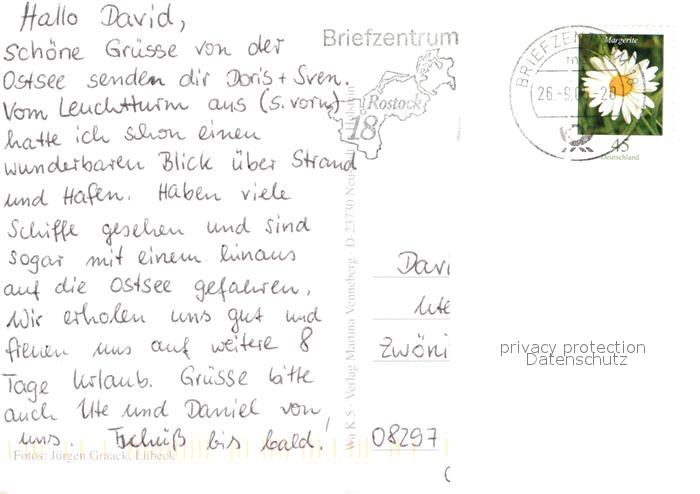 Hallo David,
schöne Grüsse von der
Ostsee senden dir Doris + Sven.
Vom Leuchtturm aus (s. vorn)
hatte ich schon einen
wunderbaren Blick über Strand
und Hafen. Haben viele
Schiffe gesehen und sind
sogar mit einem hinaus
auf die Ostsee gefahren.
Wir erholen uns gut und
freuen uns auf weitere 8
Tage Urlaub. Grüsse bitte
auch Ute und Daniel von
uns. Tschüß bis bald.
Fotos: Jürgen Graack, Lübeck
Wa K 5 - Verlag Martina Venneberg - D-23730 Neu
Briefzentrum
Rostock
18
BRIEFZENTRUM 18
Margerite
45
Deutschland
Davi
Ute
Zwöni
08297
privacy protection
Datenschutz